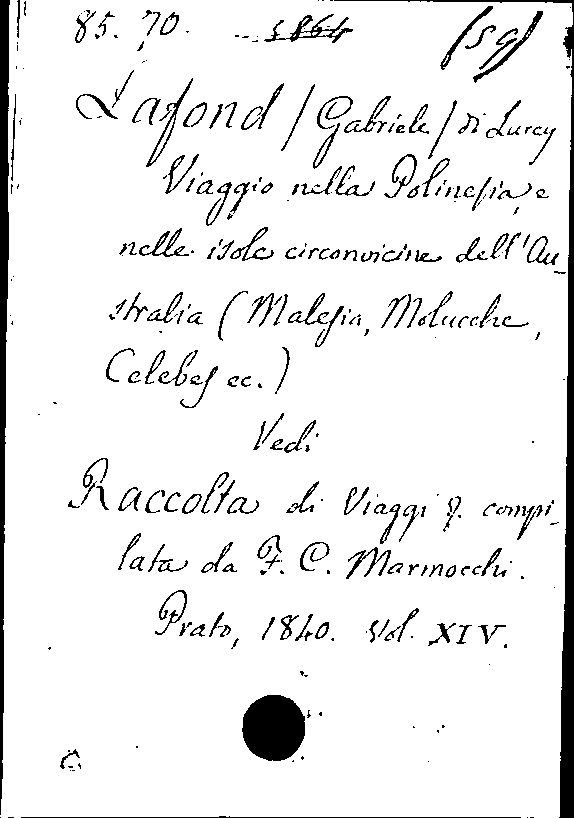 85. 70. 5864 (sg)
Lafond / Gabriele / di Lurcy
Viaggio nella Polinesia, e
nelle isole circonvicine dell'Au-
stralia (Malesia, Molucche,
Celebes ec.)
Vedi
Raccolta di Viaggi compi-
lata da F. C. Marmocchi.
Prato, 1840. Vol. XIV.